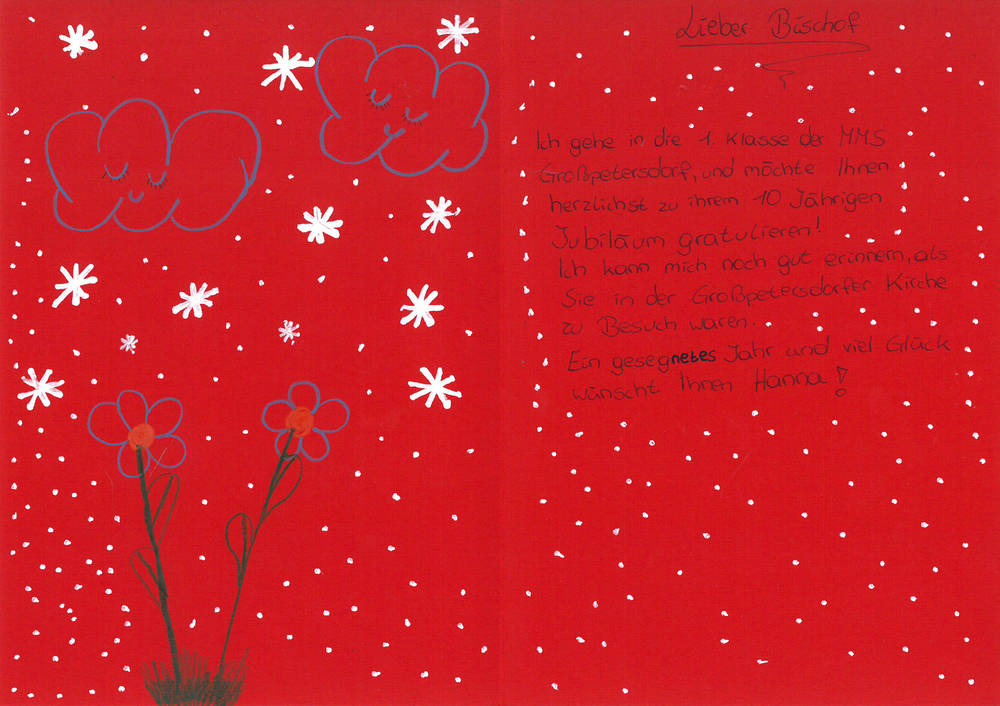 Lieber Bischof
Ich gehe in die 1. Klasse der MMS
Großpetersdorf, und möchte Ihnen
herzlichst zu ihrem 10 Jährigen
Jubiläum gratulieren!
Ich kann mich noch gut erinnern, als
Sie in der Großpetersdorfer Kirche
zu Besuch waren.
Ein gesegnetes Jahr und viel Glück
wünscht Ihnen Hanna!